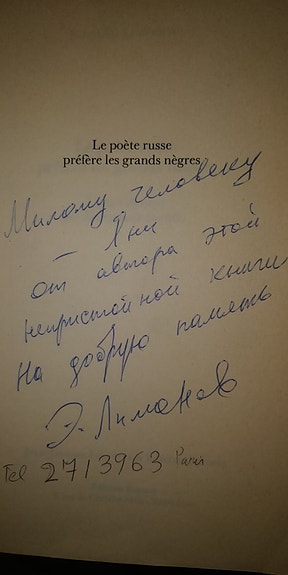 Le poète russe
préfère les grands nègres
Милому человеку
– Яни
от автора этой
непристойной книги
На добрую память
Э. Лимонов
Tel 2713963 Paris